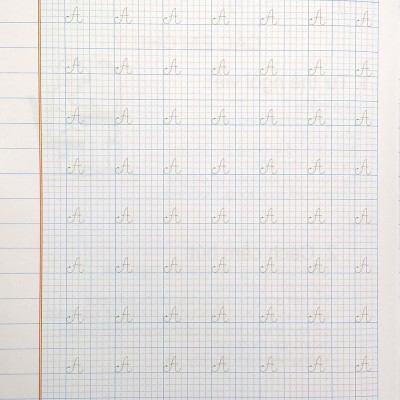 A A A A A A A
A A A A A A A
A A A A A A A
A A A A A A A
A A A A A A A
A A A A A A A
A A A A A A A
A A A A A A A